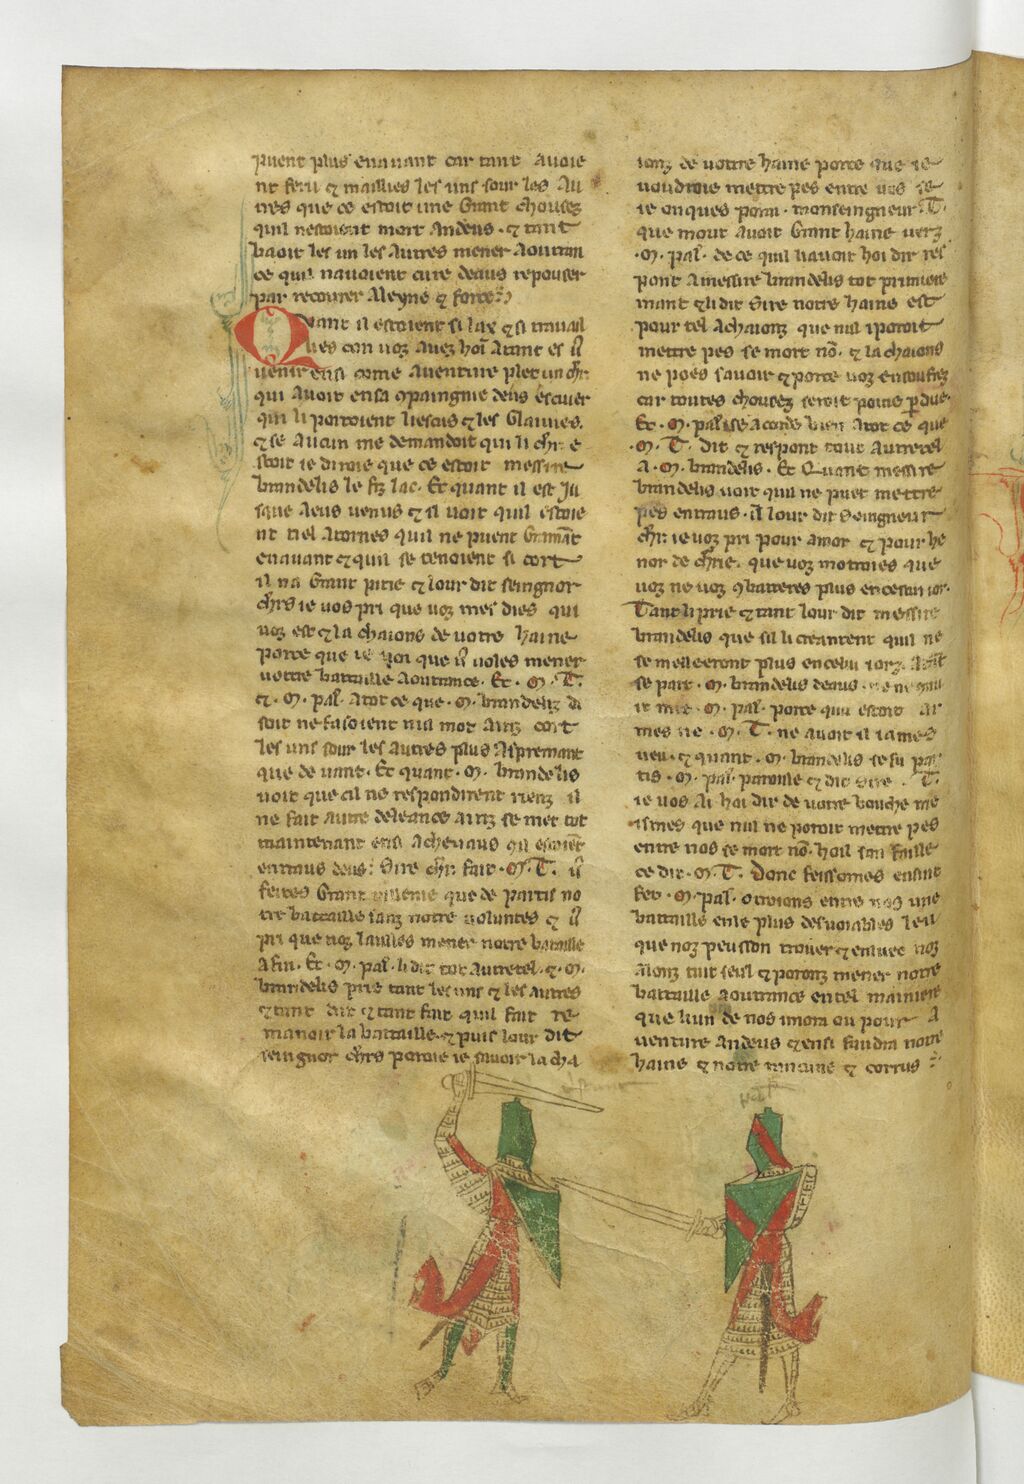 puent plus enauant car tant auoie
nt feru & maillies les uns sour les au
tres que ce estoit une Grant chousez
quil nestoient mort andeus · & tant
baoit les un les autres mener aoutran
ce quil nauoient cure deaus repouser
par recourer aleyne & force
Quant il estoient si las & si trauail
lies con uoz auez hoi atant es u
uenir ensi come auenture plet un chr
qui auoit en sa 9paingnie deus escuier
qui li portoient lescus & les Glaiues.
& se aucun me demandoit qui li chr e
stoit ie diroie que ce estoit messire
brandelis le fiz lac · Et quant il est Ju
sque aeus uenus & il uoit quil estoie
nt tiel atornes quil ne puent Grmant
enauant & quil se tenoient si cort
il na Grant pitie & lour dit seingnor
chrs ie uos pri que uoz mes dies qui
uoz est & la chaions de uotre haine
porce que ie uoi que u uoles mener
uotre bataille aoutrance · Et · M · T.
& · M · pal · atot ce que · M · brandeliz di
soit ne fasoient nul mot ainz cort
les uns sour les autres plus aspremant
que deuant · Et quant · M · brandelis
uoit que cil ne respondirent rienz il
ne fait autre deleance ainz se met tot
maintenant ensi acheuaus qil estoiet
entraus deus : Sire chr fait · M · T. u
feites Grant uillenie que departis no
tre battaille sanz notre uoluntes & u
pri que noz laisses mener notre bataille
afin · Et · M · pal · li dit tot autretel · & · M ·
brandelis prie tant les uns & les autres
& tant dit & tant fait quil fait re
manoir la battaille · & puis lour dit
seingnor chrs poroie ie sauoir la cha
ionz de uotre haine porce que ie
uoudroie mettre pes entre uos se
ie onques poroi · monseingneur · T.
que mout auoit Grant haine uerz
· M · pal · de ce quil li auoit hoi dir res
pont amessire brandelis tot primiere
mant & li dit Sire notre haine est
pour tel achaionz que nul i poroit
mettre pes se mort no · & la chaions
ne poes sauoir & porce uoz en soufrez
car toutes chousez seroit poine pdue ·
Et · M · pal · se acorde bien atot ce que
· M · T · dit & respont tout autretel
a · M · brandelis · Et Quant messire
brandelis uoit quil ne puet mettre
pes entraus · il lour dit Seingneur
chr · ie uoz pri pour amor & pour he
nor de chrie · que uoz motroies que
uoz ne uoz 9batteres plus en cestui ior ·
Tant li prie & tant lour dit messire
brandelis que sil li creantent quil ne
se melleeront plus en celui iorz
se part · M · brandelis deaus ·
· M · pal · porce quil estoit ar
mes ne · M · T · ne auoit il iames
ueu · & quant · M · brandelis se fu par
tis · M · pal · paroille & dit Sire · T.
ie uos ai hoi dir de uotre bouche me
ismes que nul ne poroit metre pes
entre nos se mort no · hoil san faille
ce dit · M · T. Donc feissomes ensint
fet · M · pal · otroions entre nos une
battaille en le plus desuoiables leu
que noz peusson trouer & enluec noz
alonz tuit seul & poronz mener notre
battaille aoutrance en tel mainiere
que lun de nos imora ou pour a
uenture andeus & ensi faudra notre
haine & notre rancune & corrus